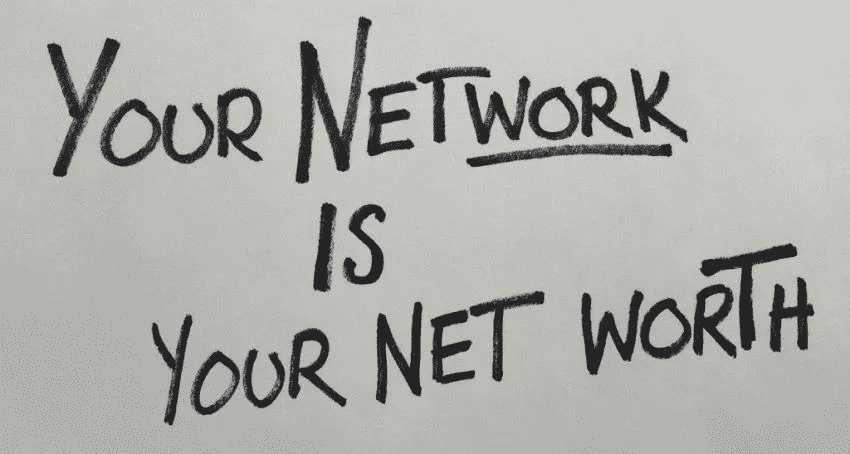 YOUR NETWORK
IS
YOUR NET WORTH